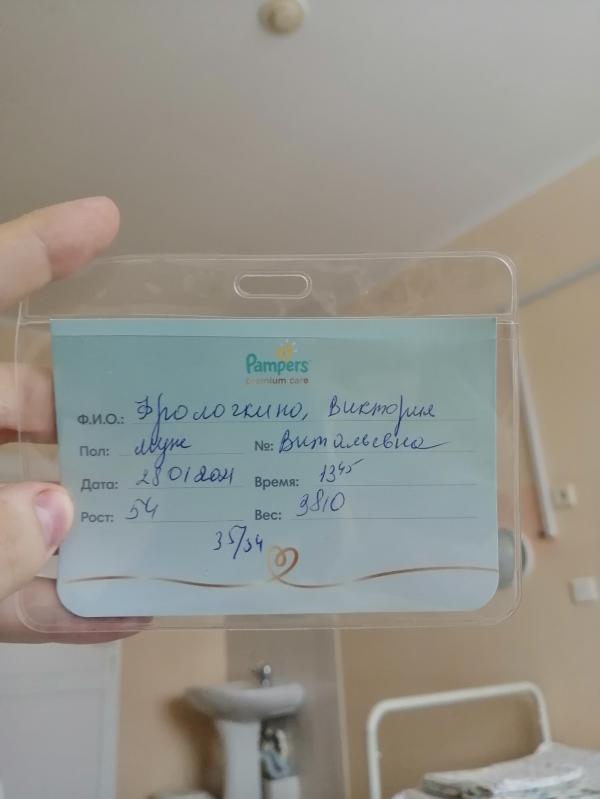 Pampers
premium care
Ф.И.О.: Фролочкина, Виктория
Пол: муж №: Витальевна
Дата: 28 01 2021 Время: 13 45
Рост: 54 Вес: 3810
35/34